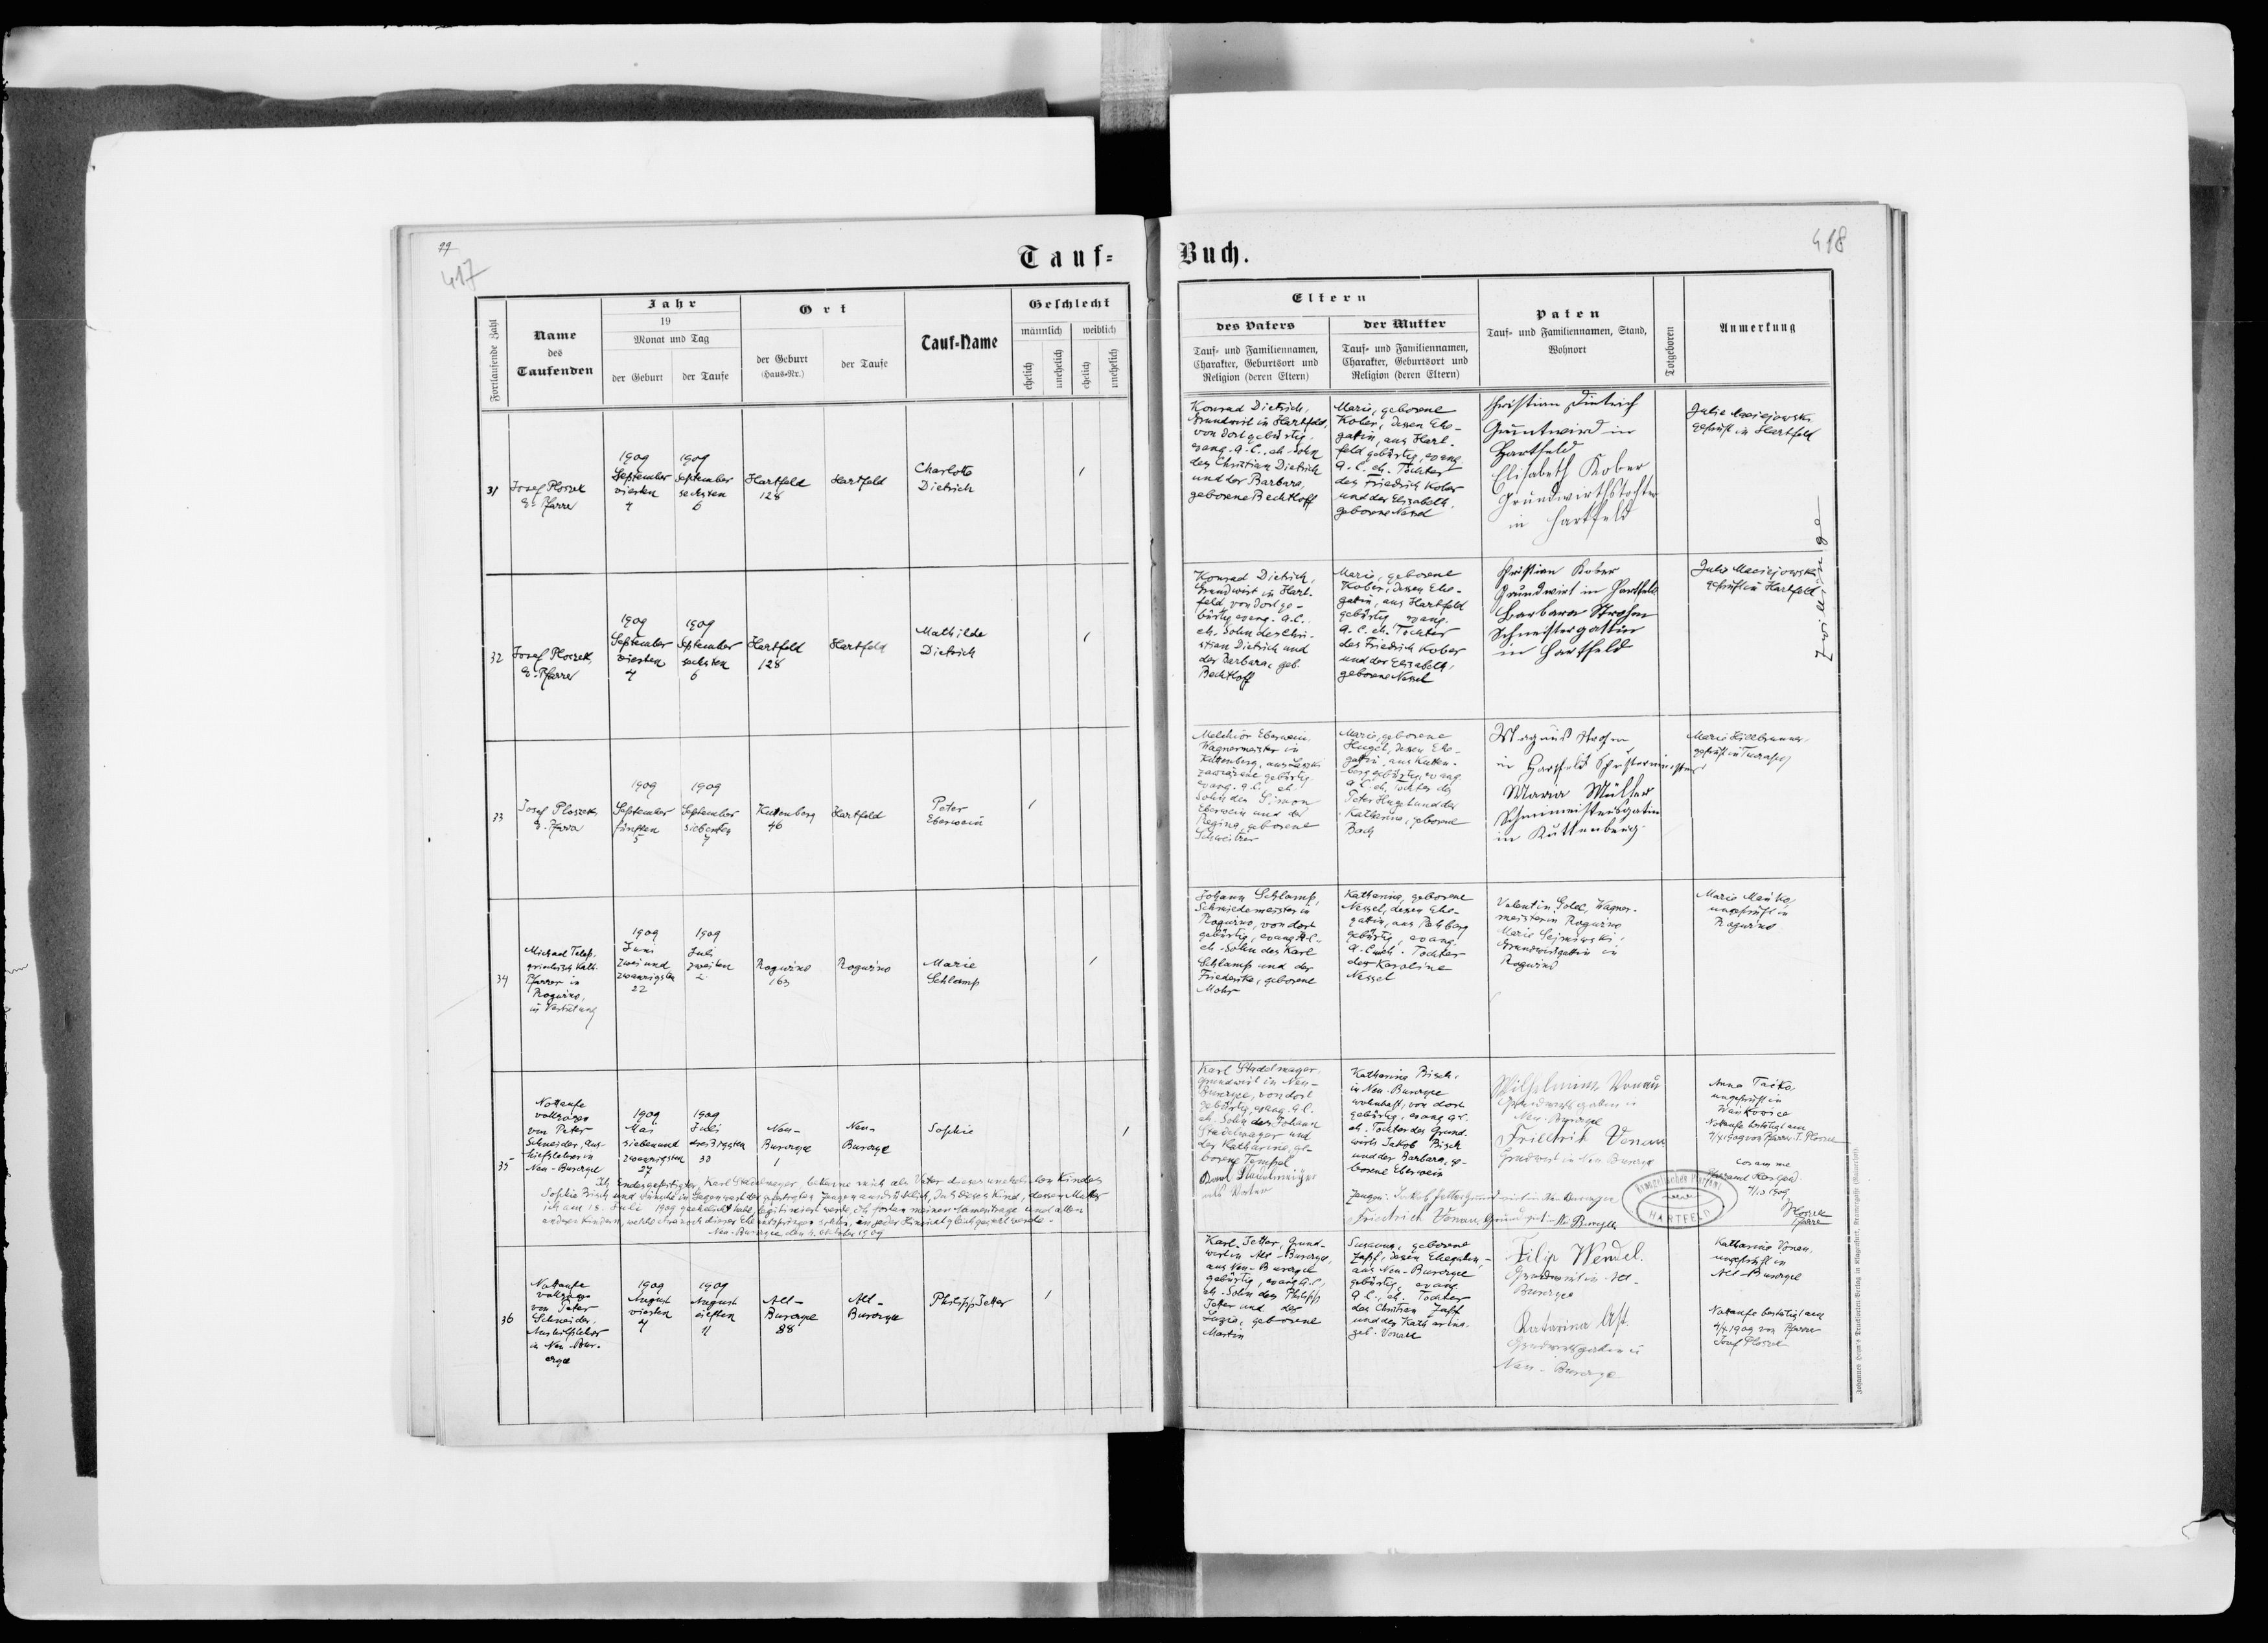 99
417
Tauf-
Fortlaufende Zahl
Name
des
Taufenden
Jahr
19
Monat und Tag
der Geburt
der Taufe
Ort
der Geburt
(Haus-Nr.)
der Taufe
Tauf-Name
Geschlecht
männlich
weiblich
ehelich
unehelich
ehelich
unehelich
31
Josef Ploszek
ev. Pfarrer
1909
September
vierten
4
1909
September
sechsten
6
Hartfeld
128
Hartfeld
Charlotte
Dietrich
32
Josef Ploszek
ev. Pfarrer
1909
September
vierten
4
1909
September
sechsten
6
Hartfeld
128
Hartfeld
Mathilde
Dietrich
33
Josef Ploszek
ev. Pfarrer
1909
September
fünften
5
1909
September
siebenten
7
Kuttenberg
46
Hartfeld
Peter
Eberwein
34
Michael
griechisch kath.
Pfarrer in
Roguźno,
in Vertretung
1909
Juni
zwei und
zwanzigsten
22
1909
Juli
zweiten
2
Roguźno
163
Roguźno
Marie
Schlamp
35
Nottaufe
vollzogen
von Peter
Schneider, Aus-
hilfslehrer in
Neu-Burczyce
1909
Mai
siebenund
zwanzigsten
27
1909
Juli
dreißigsten
30
Neu-
Burczyce
1
Neu-
Burczyce
Sophie
Ich Endesgefertigter, Karl Stadelmayer, bekenne mich als Vater dieses unehelichen Kindes
Sophie Bisch und wünsche in Gegenwart der gefertigten Zeugen ausdrücklich, daß dieses Kind, dessen Mutter
ich am 18. Juli 1909 geehelicht habe, legitimiert werde, ich fortan meinen Namen trage und allen
anderen Kindern, welche etwa noch dieser Ehe entspringen sollten, in jeder Hinsicht gleichgestellt werde.-
Neu-Burczyce den 4. Oktober 1909
36
Nottaufe
vollzogen
von Peter
Schneider,
Aushilfslehrer
in Neu-Bur-
czyce
1909
August
vierten
4
1909
August
elften
11
Alt-
Burczyce
88
Alt-
Burczyce
Philipp Jetter
Buch.
418
Eltern
des Vaters
Tauf- und Familiennamen,
Charakter, Geburtsort und
Religion (deren Eltern)
der Mutter
Tauf- und Familiennamen,
Charakter, Geburtsort und
Religion (deren Eltern)
Paten
Tauf- und Familiennamen, Stand,
Wohnort
Totgeboren
Anmerkung
Konrad Dietrich,
Grundwirt in Hartfeld,
von dort gebürtig,
evang. A.C., eh. Sohn
des Christian Dietrich
und der Barbara,
geborene Bechtloff
Marie, geborene
Kober, dessen Ehe-
gattin, aus Hart-
feld gebürtig, evang.
A.C. eh. Tochter
des Friedrich Kober
und der Elisabeth,
geborene Nessel
Christian Dietrich
Grundwird in
Hartfeld
Elisabeth Kober
Grundwirthstochter
in Hartfeld
Julie Maciejowska
geprüft in Hartfeld
Zwillinge
Konrad Dietrich,
Grundwirt in Hart-
feld, von dort ge-
bürtig, evang. A.C.
eh. Sohn des Chri-
stian Dietrich und
der Barbara, geb.
Bechtloff
Marie, geborene
Kober, dessen Ehe-
gattin, aus Hartfeld
gebürtig, evang.
A.C. eh. Tochter
des Friedrich Kober
und der Elisabeth,
geborene Nessel
Christian Kober
Grundwirt in Hartfeld
Barbara Strohm
in Hartfeld
Julie Maciejowska
geprüft in Hartfeld
Melchior Eberwein,
Wagnermeister in
Kuttenberg, aus
gebürtig,
evang. A.C. eh.
Sohn des Simon
Eberwein und der
Regina, geborene
Schweitzer
Marie, geborene
Hugel, dessen Ehe-
gattin, aus Kutten-
berg gebürtig, evang.
A.C. eh. Tochter des
Peter Hugel und der
Katharina, geborene
Bach
Magnus Strohm
in Hartfeld Schustermeister
Maria Müller
in Kuttenberg
Marie Hillbrunner
geprüft in
Johann Schlamp,
Schmiedemeister in
Roguźno, von dort
gebürtig, evang. A.C.
eh. Sohn des Karl
Schlamp und der
Friederike, geborene
Mohr
Katharina, geborene
Nessel, dessen Ehe-
gattin, aus
gebürtig, evang.
A.C. uneh. Tochter
der Karoline
Nessel
Valentin Golec, Wagner-
meister in Roguźno
Marie
Grundwirtsgattin in
Roguźno
Marie
ungeprüft in
Roguźno
Karl Stadelmayer,
Grundwirt in Neu-
Burczyce, von dort
gebürtig, evang. A.C.
eh. Sohn des Johann
Stadelmayer und
der Katharina, ge-
borene Tempel
Karl Stadelmeiyer
als Vater
Katharina Bisch,
in Neu-Burczyce
wohnhaft, von dort
gebürtig, evang. A.C.
eh. Tochter des Grund-
wirts Jakob Bisch
und der Barbara, ge-
borene Eberwein
Wilhelmine Vonau
Grundwirtsgattin in
Neu-Burczyce
Friedrich Vonau
Grundwirt in Neu-Burczyce
Zeugen: Jakob Jetter Grundwirt in Neu-Burczyce
Friedrich Vonau, Grundwirt in Neu Burczyce
Anna
ungeprüft in
Wańkowice
Nottaufe bestätigt am
4/X. 1909 von Pfarrer J. Ploszek
Coram me
Pfarramt Hartfeld
4/10 1909
Ploszek
Pfarrer
Evangelisches Pfarramt
HARTFELD
Karl Jetter, Grund-
wirt in Alt-Burczyce,
aus Neu-Burczyce
gebürtig, evang. A.C.,
eh. Sohn des Philipp
Jetter und der
Luzia, geborene
Martin
Susanna, geborene
Zapf, dessen Ehegattin,
aus Neu-Burczyce
gebürtig, evang.
A.C., eh. Tochter
des Christian Zapf
und der Katharina,
geb. Vonau
Filip Wendel.
Grundwirt in Alt-
Burczyce
Katarina Ast.
Grundwirtsgattin in
Neu-Burczyce
Katharina Vonau,
ungeprüft in
Alt-Burczyce
Nottaufe bestätigt am
4/X. 1909 von Pfarrer
Josef Ploszek